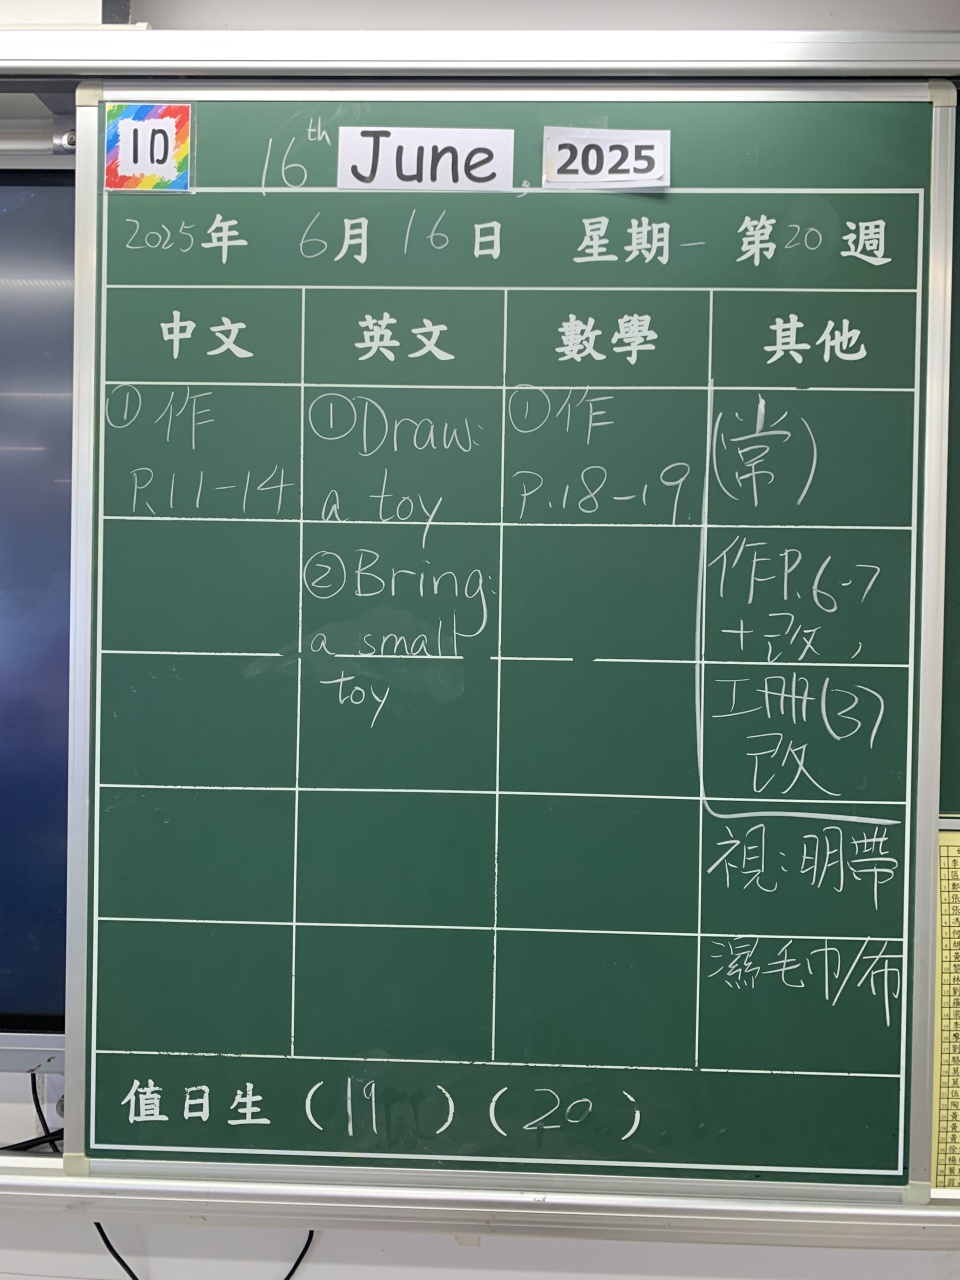 1D
16th June, 2025
2025年 6月16日 星期一 第20週
中文 英文 數學 其他
①作
P.11-14
①Draw:
a toy
②Bring:
a small
toy
①作
P.18-19
(常)
作P.6-7
+改,
工冊(3)
改
視:明帶
濕毛巾/布
值日生 (19) (20)